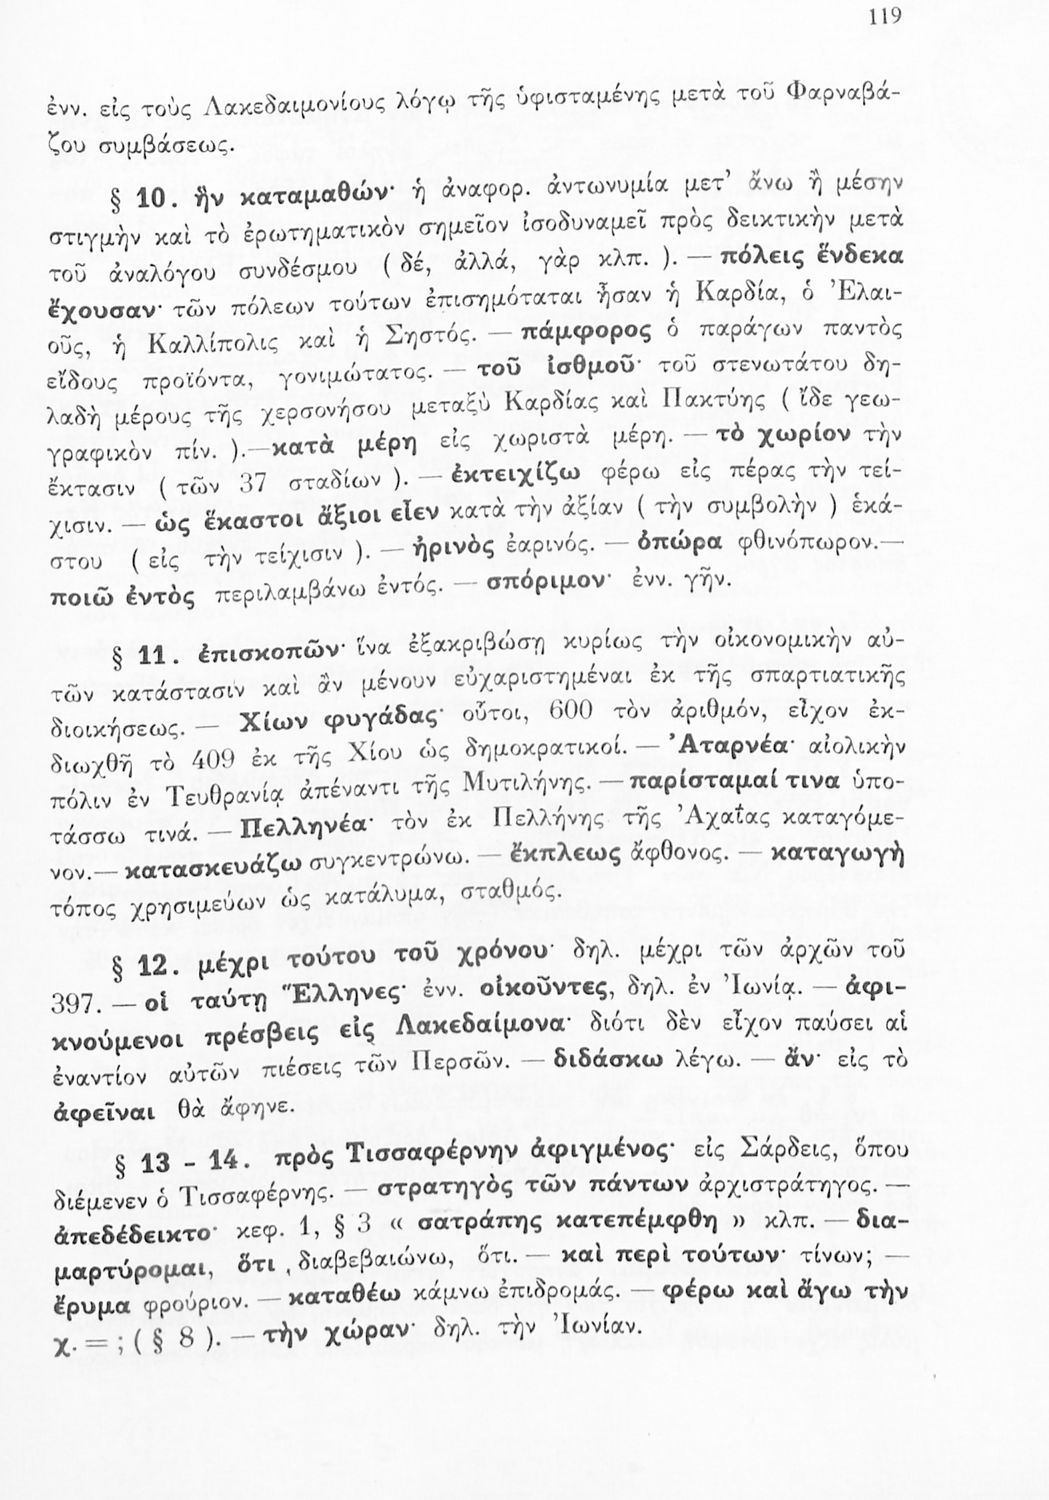 119
ἐνν. εἰς τοὺς Λακεδαιμονίους λόγῳ τῆς ὑφισταμένης μετὰ τοῦ Φαρναβά-
ζου συμβάσεως.
§ 10. ἣν καταμαθών· ἡ ἀναφορ. ἀντωνυμία μετ’ ἄνω ἢ μέσην
στιγμὴν καὶ τὸ ἐρωτηματικὸν σημεῖον ἰσοδυναμεῖ πρὸς δεικτικὴν μετὰ
τοῦ ἀναλόγου συνδέσμου ( δέ, ἀλλά, γὰρ κλπ. ). — πόλεις ἕνδεκα
ἔχουσαν· τῶν πόλεων τούτων ἐπισημόταται ἦσαν ἡ Καρδία, ὁ Ἐλαι-
οῦς, ἡ Καλλίπολις καὶ ἡ Σηστός. — πάμφορος ὁ παράγων παντὸς
εἴδους προϊόντα, γονιμώτατος. — τοῦ ἰσθμοῦ· τοῦ στενωτάτου δη-
λαδὴ μέρους τῆς χερσονήσου μεταξὺ Καρδίας καὶ Πακτύης ( ἴδε γεω-
γραφικὸν πίν. ).—κατὰ μέρη εἰς χωριστὰ μέρη. — τὸ χωρίον τὴν
ἔκτασιν ( τῶν 37 σταδίων ). — ἐκτειχίζω φέρω εἰς πέρας τὴν τεί-
χισιν. — ὡς ἕκαστοι ἄξιοι εἶεν κατὰ τὴν ἀξίαν ( τὴν συμβολὴν ) ἑκά-
στου ( εἰς τὴν τείχισιν ). — ἠρινὸς ἐαρινός. — ὀπώρα φθινόπωρον.—
ποιῶ ἐντὸς περιλαμβάνω ἐντός. — σπόριμον· ἐνν. γῆν.
§ 11. ἐπισκοπῶν· ἵνα ἐξακριβώσῃ κυρίως τὴν οἰκονομικὴν αὐ-
τῶν κατάστασιν καὶ ἂν μένουν εὐχαριστημέναι ἐκ τῆς σπαρτιατικῆς
διοικήσεως. — Χίων φυγάδας· οὗτοι, 600 τὸν ἀριθμόν, εἶχον ἐκ-
διωχθῆ τὸ 409 ἐκ τῆς Χίου ὡς δημοκρατικοί. — Ἀταρνέα· αἰολικὴν
πόλιν ἐν Τευθρανίᾳ ἀπέναντι τῆς Μυτιλήνης. — παρίσταμαί τινα ὑπο-
τάσσω τινά. — Πελληνέα· τὸν ἐκ Πελλήνης τῆς Ἀχαΐας καταγόμε-
νον.— κατασκευάζω συγκεντρώνω. — ἔκπλεως ἄφθονος. — καταγωγὴ
τόπος χρησιμεύων ὡς κατάλυμα, σταθμός.
§ 12. μέχρι τούτου τοῦ χρόνου· δηλ. μέχρι τῶν ἀρχῶν τοῦ
397. — οἱ ταύτῃ Ἕλληνες· ἐνν. οἰκοῦντες, δηλ. ἐν Ἰωνίᾳ. — ἀφι-
κνούμενοι πρέσβεις εἰς Λακεδαίμονα· διότι δὲν εἶχον παύσει αἱ
ἐναντίον αὐτῶν πιέσεις τῶν Περσῶν. — διδάσκω λέγω. — ἄν· εἰς τὸ
ἀφεῖναι θὰ ἄφηνε.
§ 13 - 14. πρὸς Τισσαφέρνην ἀφιγμένος· εἰς Σάρδεις, ὅπου
διέμενεν ὁ Τισσαφέρνης. — στρατηγὸς τῶν πάντων ἀρχιστράτηγος. —
ἀπεδέδεικτο· κεφ. 1, § 3 « σατράπης κατεπέμφθη » κλπ. — δια-
μαρτύρομαι, ὅτι , διαβεβαιώνω, ὅτι. — καὶ περὶ τούτων· τίνων; —
ἔρυμα φρούριον. — καταθέω κάμνω ἐπιδρομάς. — φέρω καὶ ἄγω τὴν
χ. = ; ( § 8 ). — τὴν χώραν· δηλ. τὴν Ἰωνίαν.